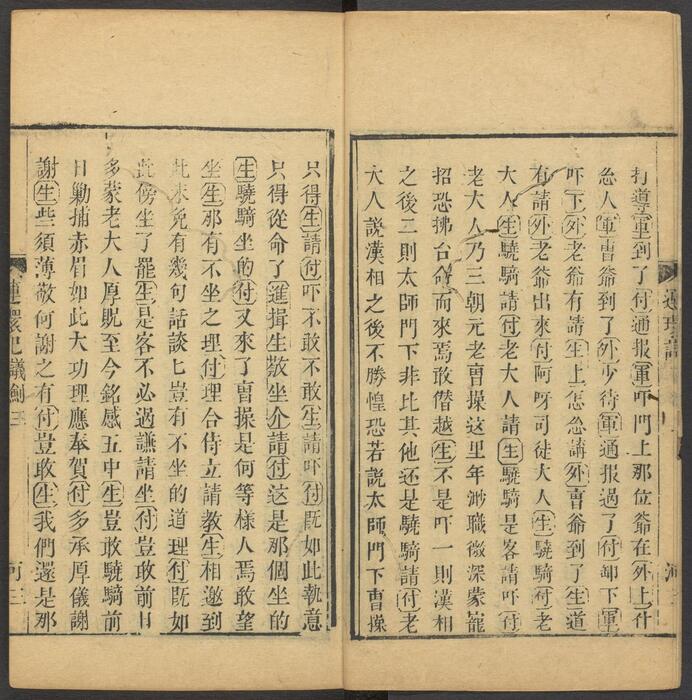 打導軍到了付通報軍吓門上那位爺在外上什
怂人軍曹爺到了外少待軍通報過了付卸下軍
吓下外老爺有請生上怎怂講外曹爺到了生道
有請外老爺出來付阿呀司徒大人生驍騎付老
大人生驍騎請付老大人請生驍騎是客請吓付
老大人乃三朝元老曹操这里年渺職微深蒙寵
招恐拂台命而來焉敢僭越生不是吓一則漢相
之後二則太師門下非比其他还是驍騎請付老
大人說漢相之後不勝惶恐若說太師門下曹操
只得生請付吓不敢不敢生請吓付既如此執意
只得從命了進揖生敬坐介請付这是那個坐的
生驍騎坐的付又來了曹操是何等樣人焉敢望
坐生那有不坐之理付理合侍立請教生相邀到
此未免有幾句話談匕豈有不坐的道理付既如
此傍坐了罷生是客不必過謙請坐付豈敢前日
多蒙老大人厚貺至今銘感五中生豈敢驍騎前
日勦捕赤眉如此大功理應奉賀付多承厚儀謝
謝生些須薄敬何謝之有付豈敢生我們還是那
連環記議劍 三